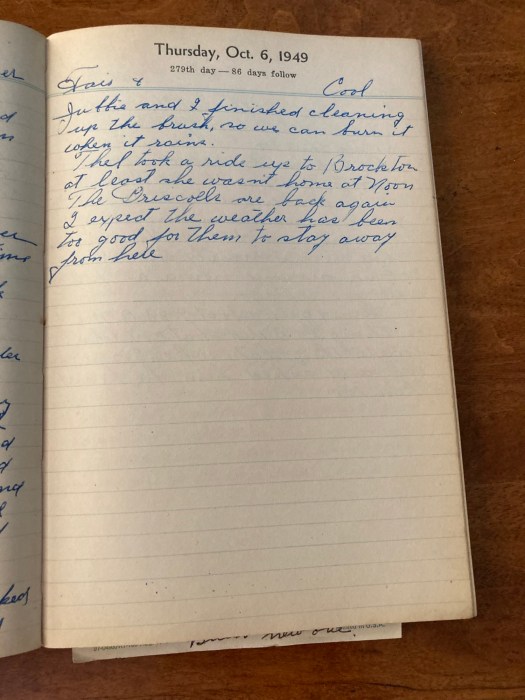 Thursday, Oct. 6, 1949
279th day — 86 days follow
Fair & Cool
Jubbie and I finished cleaning
up the brush, so we can burn it
when it rains.
Thel took a ride up to Brockton
at least she wasn't home at Noon
The Driscolls are back again
I expect the weather has been
too good for them to stay away
from here
new one.